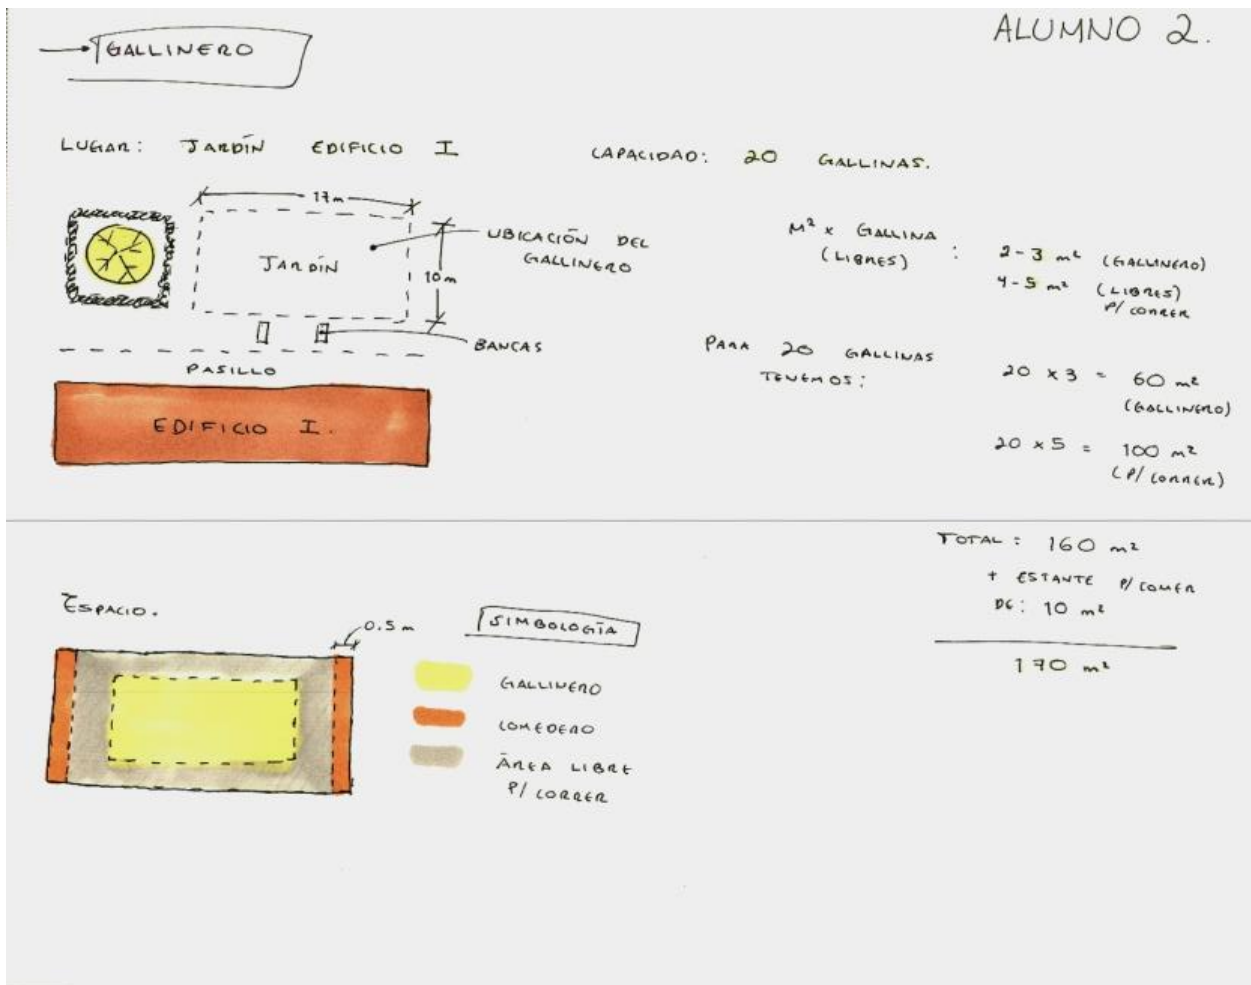 ALUMNO 2.
GALLINERO
LUGAR: JARDÍN EDIFICIO I
CAPACIDAD: 20 GALLINAS.
17m
JARDÍN
10m
UBICACIÓN DEL
GALLINERO
BANCAS
PASILLO
EDIFICIO I.
M² x GALLINA
(LIBRES) :
2-3 m² (GALLINERO)
4-5 m² (LIBRES)
P/ CORRER
PARA 20 GALLINAS
TENEMOS:
20 x 3 = 60 m²
(GALLINERO)
20 x 5 = 100 m²
(P/ CORRER)
TOTAL: 160 m²
+ ESTANTE P/ COMER
DE: 10 m²
170 m²
ESPACIO.
0.5 m
SIMBOLOGÍA
GALLINERO
COMEDERO
ÁREA LIBRE
P/ CORRER